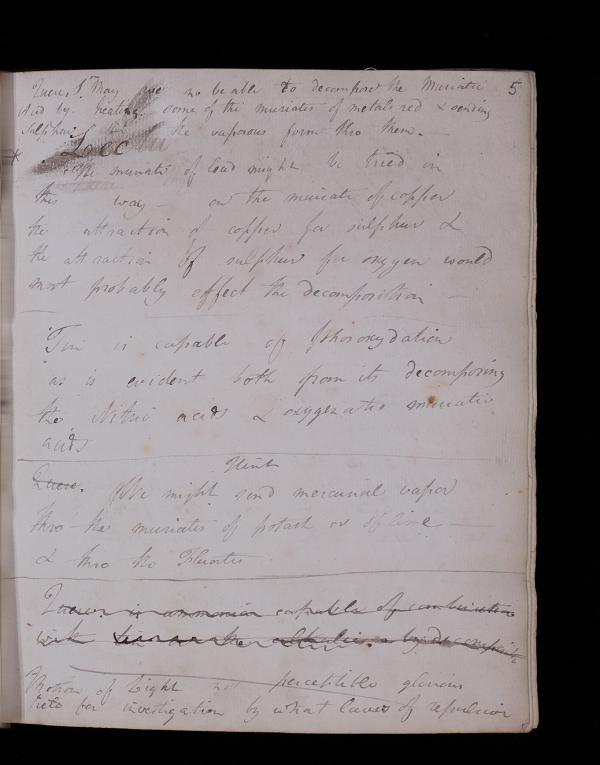 5
Quere 1st May we no be able to decompose the Muriatic
Acid by heating some of the muriates of metals red & sending
Sulphur in the vaporous form thro them. —
The muriate of lead might be tried in
this way — or the muriate of copper
the attraction of copper for sulphur &
the attraction of sulphur for oxygen would
most probably effect the decomposition —
Tin is capable of Phosoxydation
as is evident both from its decomposing
the Nitric acids & oxygenatic muriatic
acids
Hint
Quere. We might send mercurial vapor
thro the muriates of potash or of lime —
& thro the Fluates
Quere is ammonia capable of combination
with
Motion of Light not perceptible glorious
field for investigation by what laws of repulsion